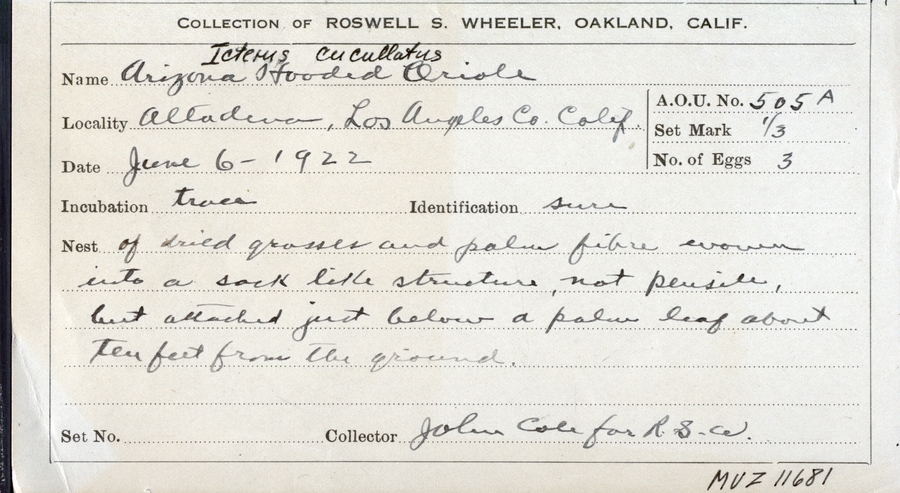 COLLECTION OF ROSWELL S. WHEELER, OAKLAND, CALIF.
Icterus cucullatus
Name Arizona Hooded Oriole
A.O.U. No. 505 A
Locality Altadena, Los Angeles Co. Calif.
Set Mark 1/3
Date June 6 - 1922
No. of Eggs 3
Incubation trace Identification sure
Nest of dried grasses and palm fibre woven
into a sack like structure, not pensile,
but attached just below a palm leaf about
ten feet from the ground.
Set No. Collector John Cole for R.S.W.
MVZ 11681